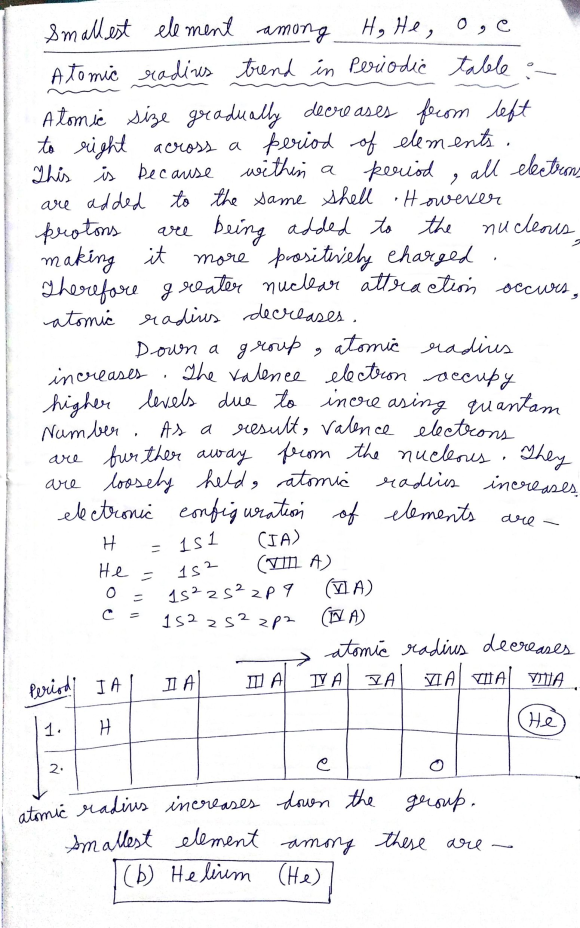 Smallest element among H, He, O, C
Atomic radius trend in Periodic table :-
Atomic size gradually decreases from left
to right across a period of elements.
This is because within a period, all electrons
are added to the same shell. However
protons are being added to the nucleous,
making it more positively charged.
Therefore greater nuclear attraction occurs,
atomic radius decreases.
Down a group, atomic radius
increases. The valence electron occupy
higher levels due to increasing quantam
Number. As a result, valence electrons
are further away from the nucleous. They
are loosely held, atomic radius increases.
electronic configuration of elements are -
H = 1s1 (IA)
He = 1s2 (VIII A)
O = 1s2 2s2 2p4 (VI A)
C = 1s2 2s2 2p2 (IV A)
→ atomic radius decreases
Period IA II A III A IV A V A VI A VII A VIII A.
1. H He
2. C O
atomic radius increases down the group.
Smallest element among these are -
(b) Helium (He)